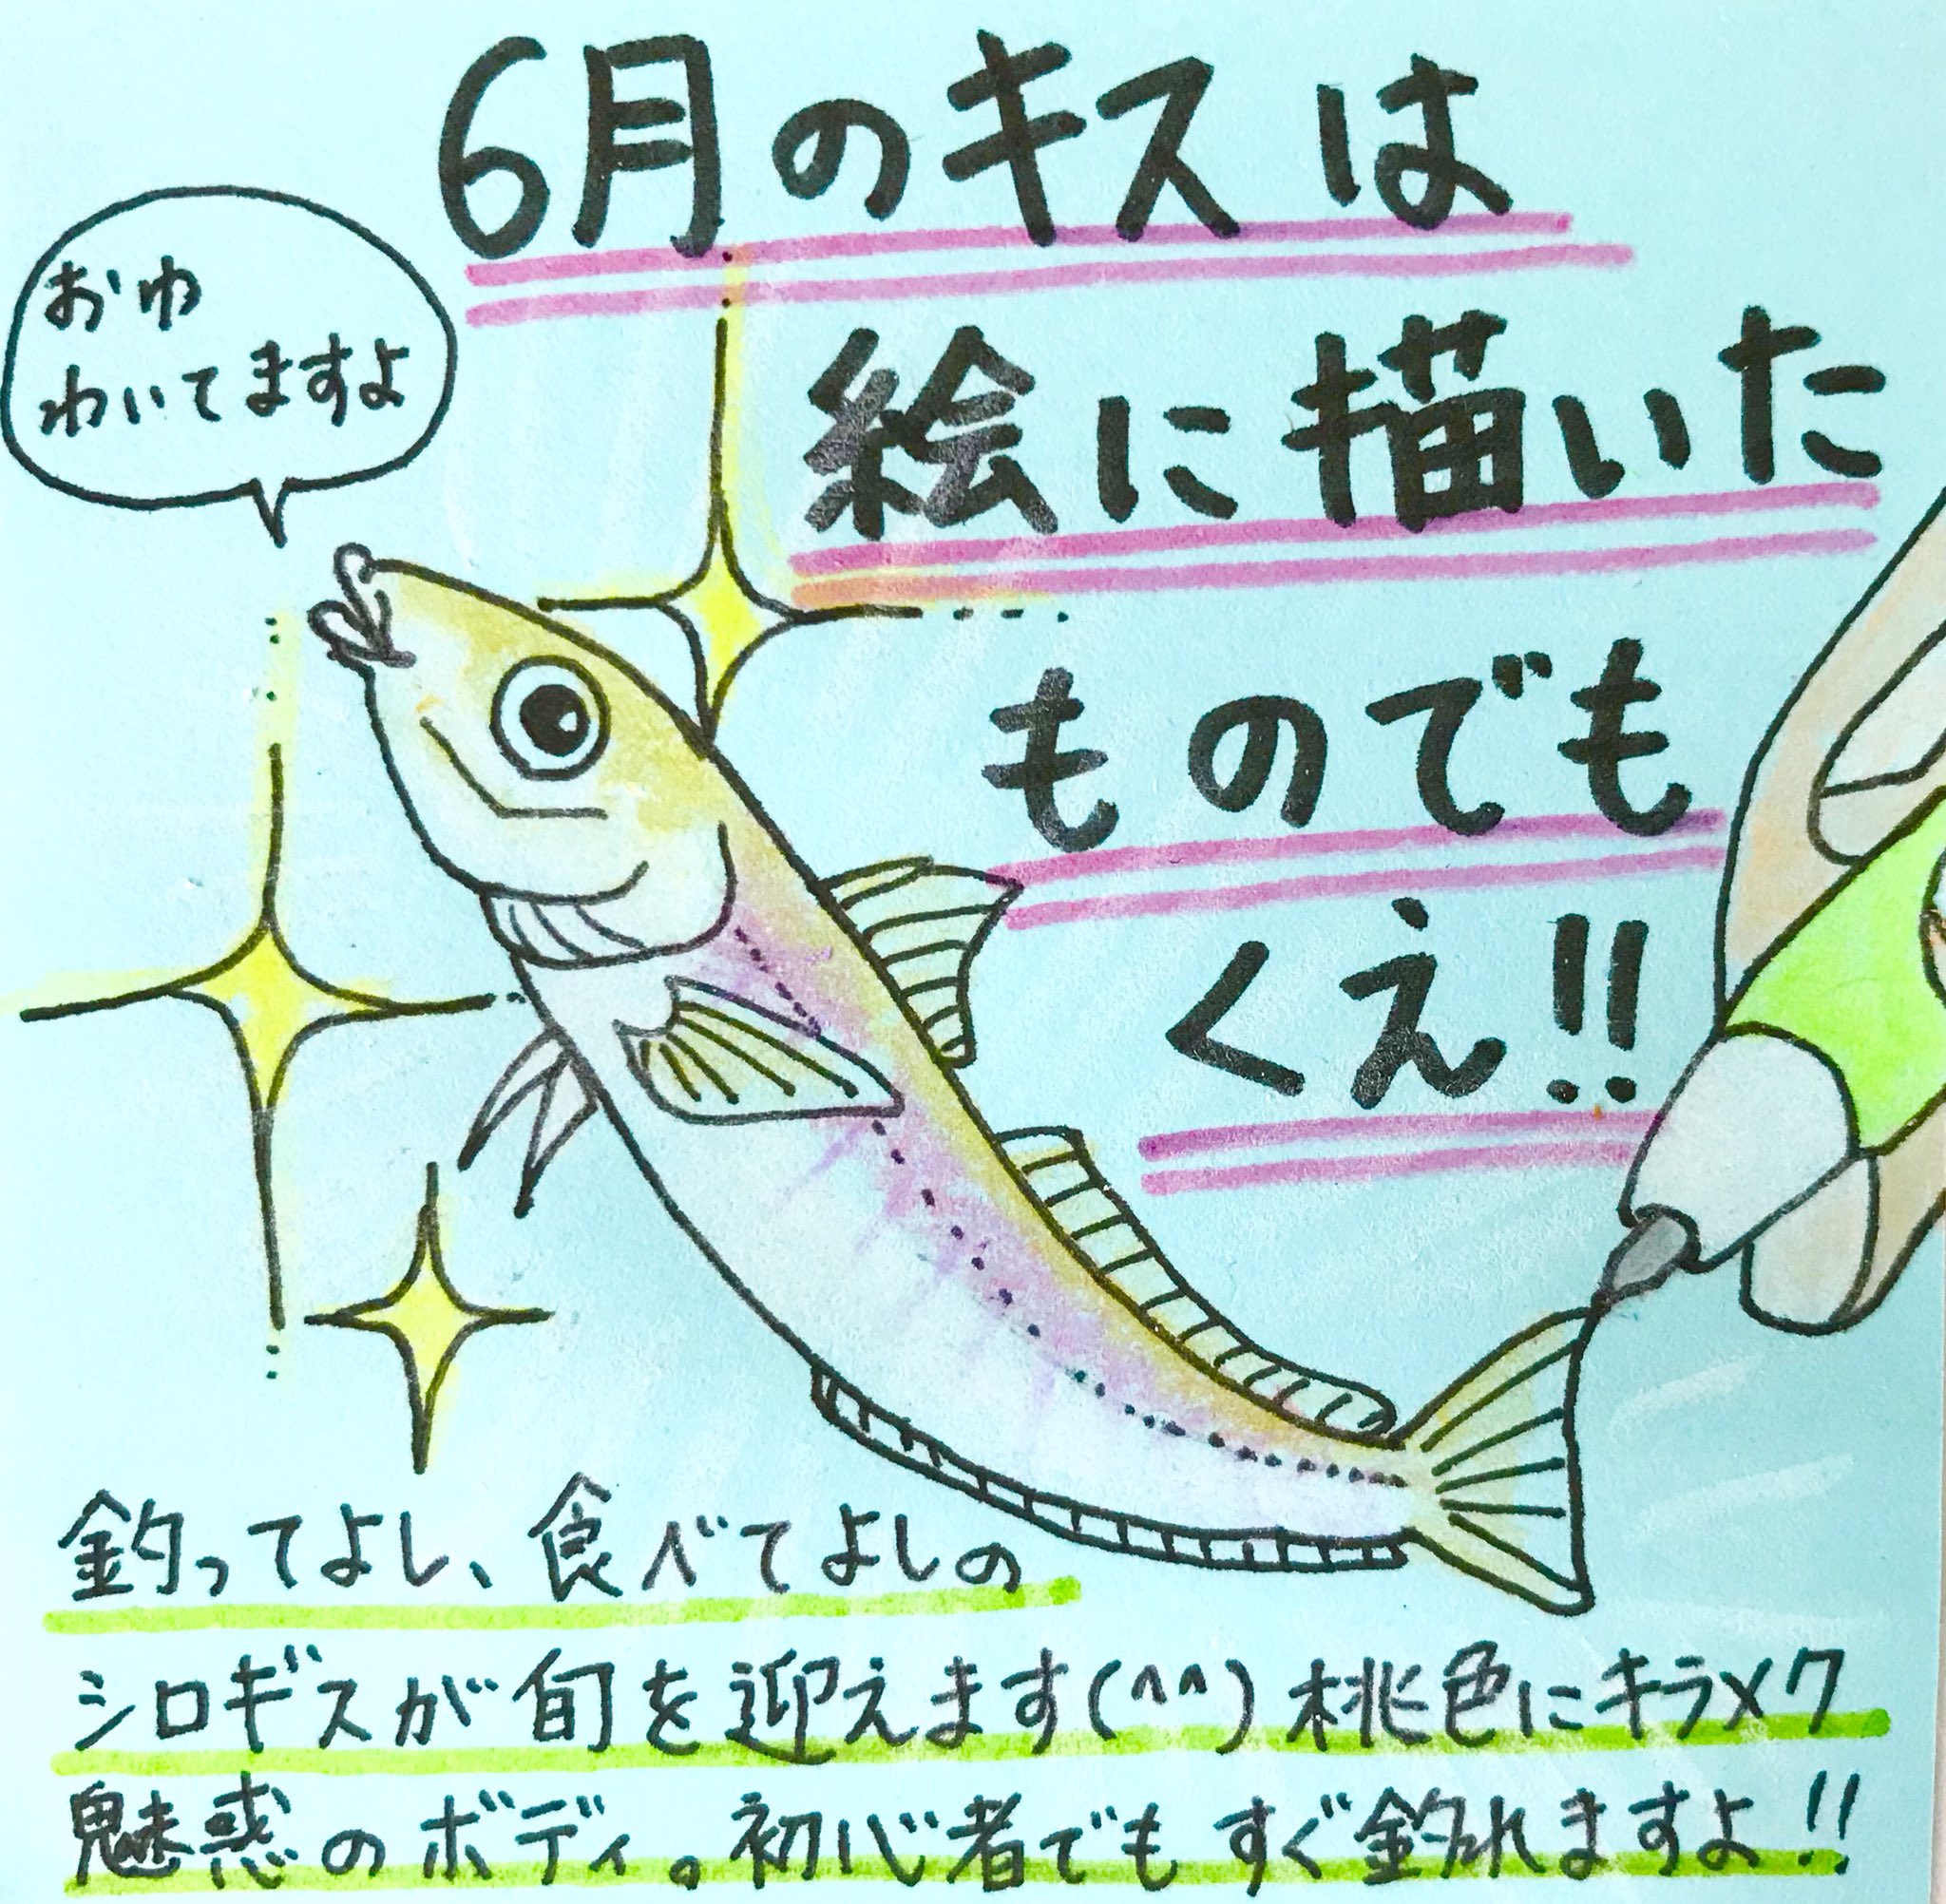 6月のキスは
絵に描いた
ものでも
くえ!!
おゆ
わいてますよ
釣ってよし、食べてよしの
シロギスが旬を迎えます(^^)桃色にキラメク
魅惑のボディ。初心者でもすぐ釣れますよ!!